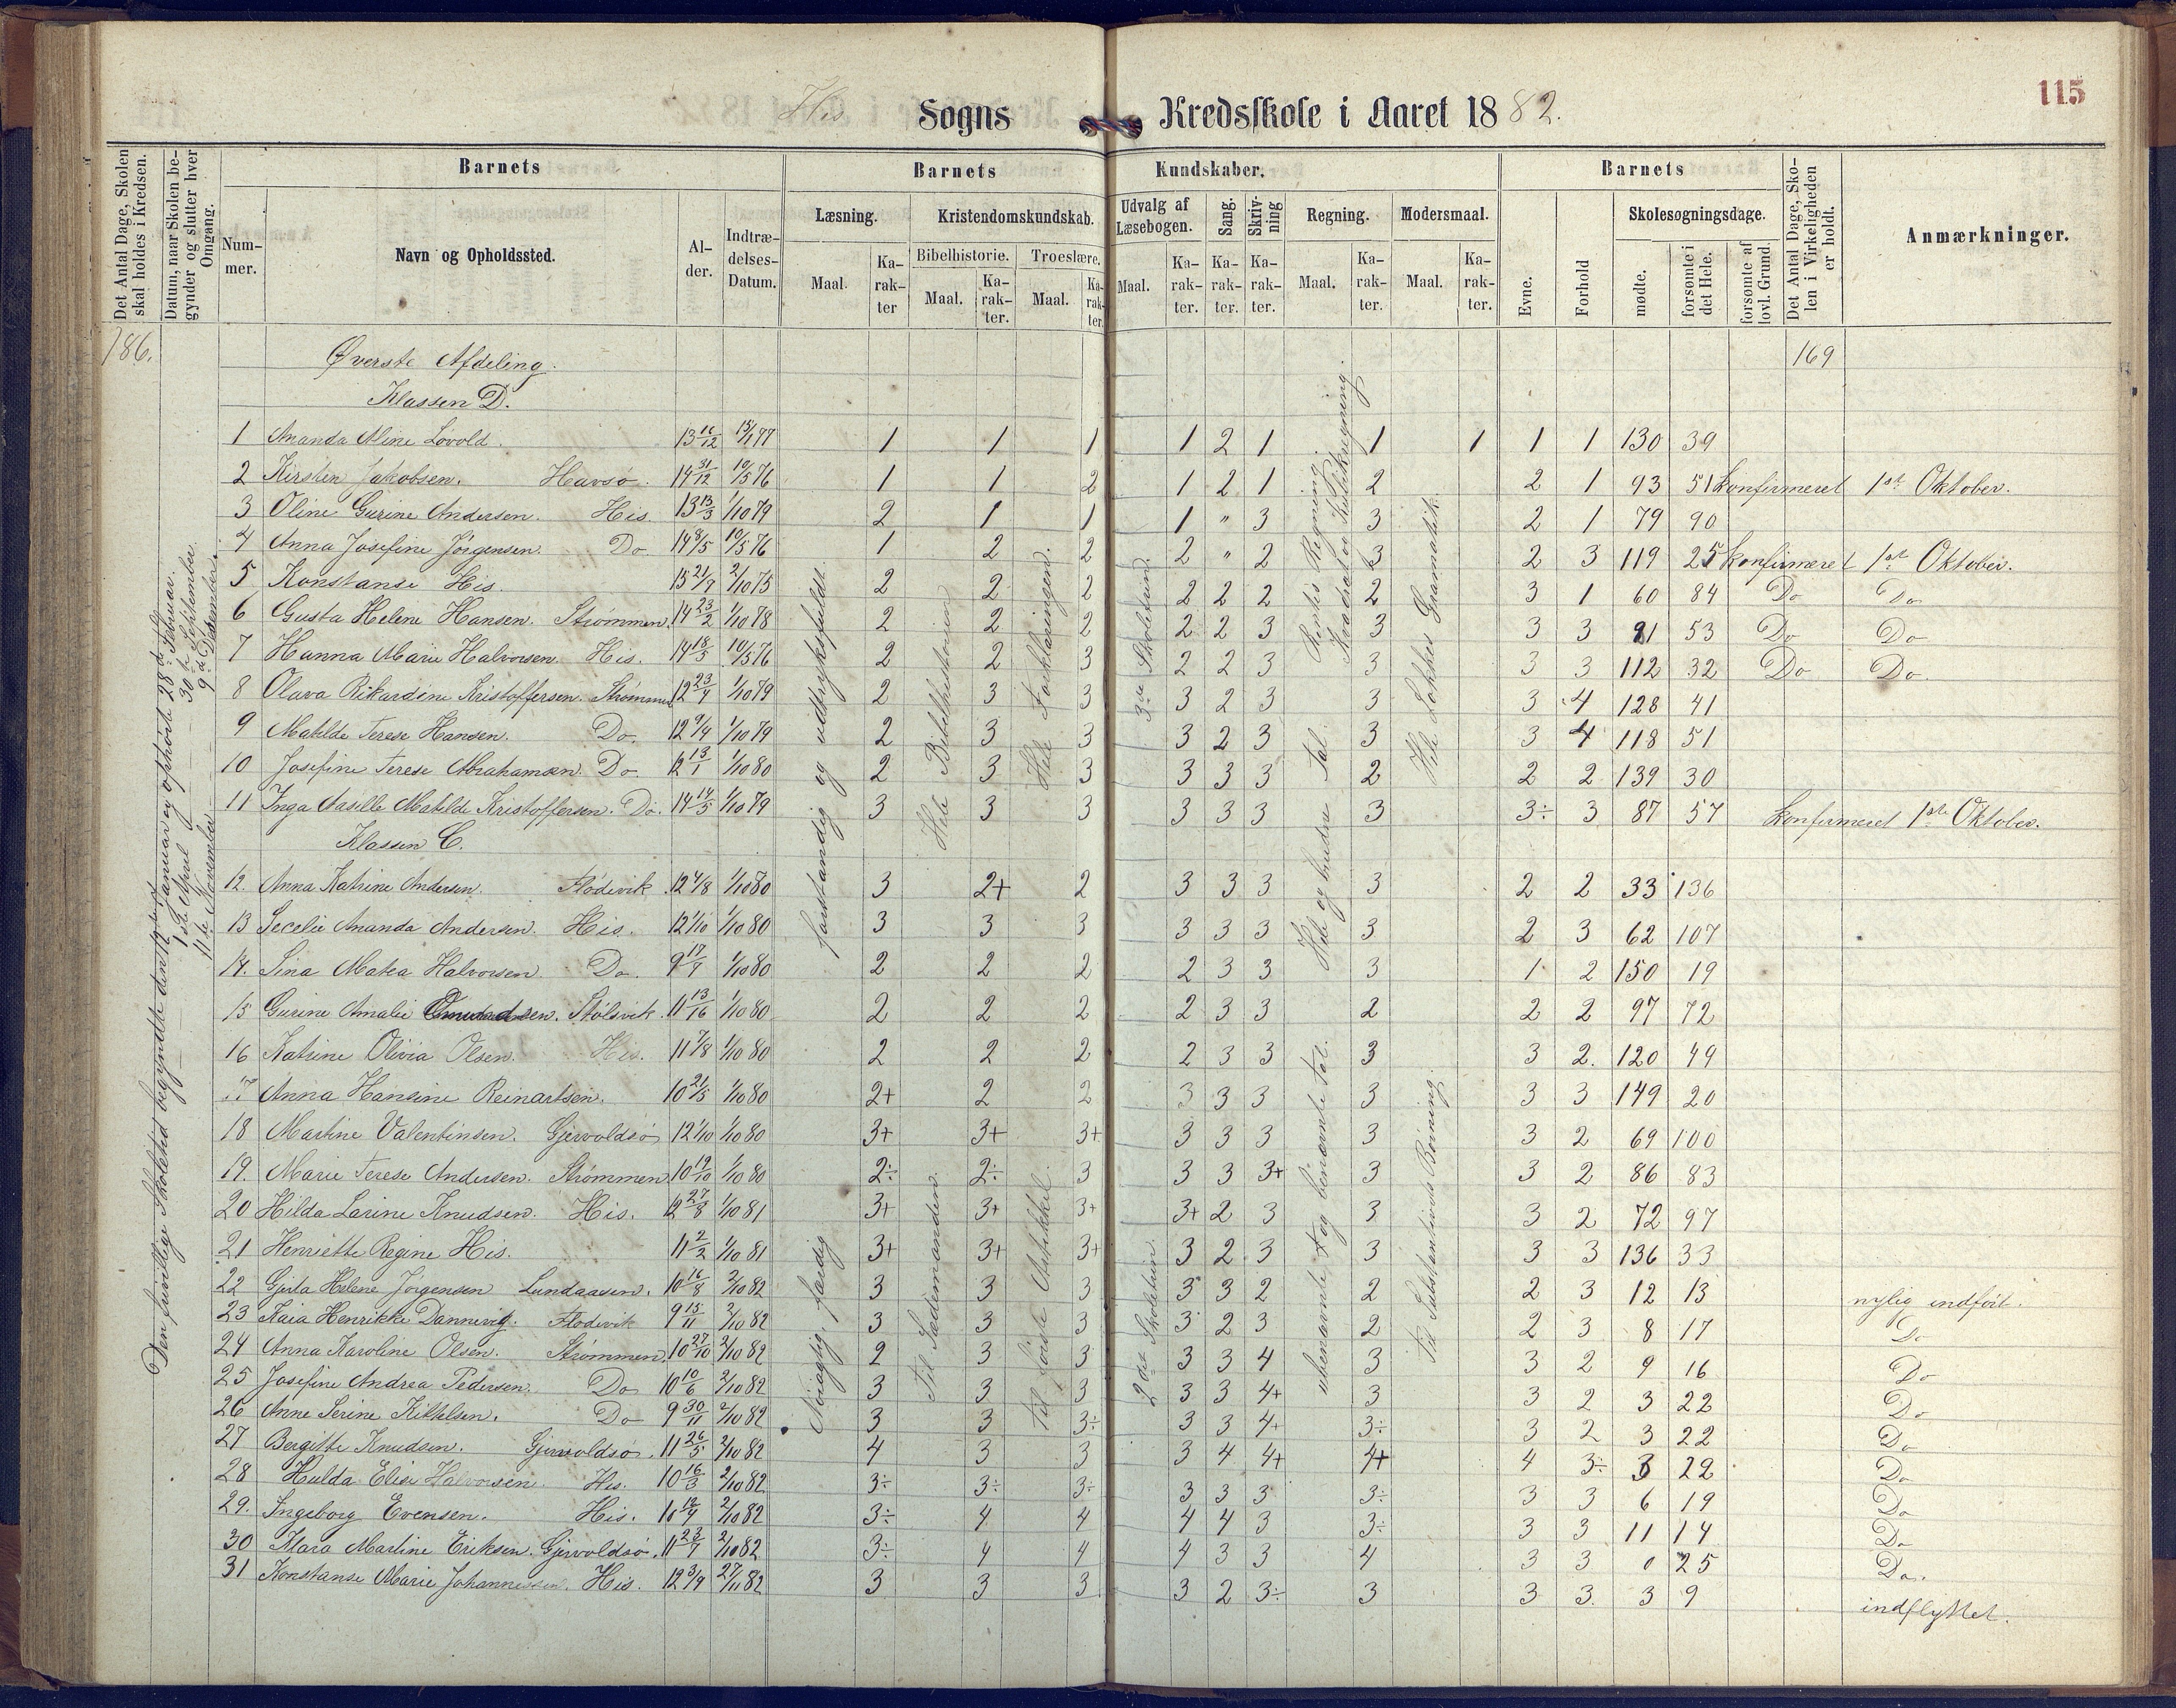 115
His Sogns Kredsskole i Aaret 1882.
Det Antal Dage, Skolen skal holdes i Kredsen.
Datum, naar Skolen begynder og slutter hver Omgang.
Barnets
Barnets Kundskaber.
Barnets
Nummer.
Navn og Opholdssted.
Alder.
Indtrædelses-Datum.
Læsning.
Kristendomskundskab.
Udvalg af Læsebogen.
Sang.
Skrivning
Regning.
Modersmaal.
Skolesøgningsdage.
Det Antal Dage, Skolen i Virkeligheden er holdt.
Anmærkninger.
Bibelhistorie. Troeslære.
Maal. Karakter Maal. Karakter. Maal. Karakter. Maal. Karakter. Karakter. Karakter. Maal. Karakter. Maal. Karakter.
Evne. Forhold mødte. forsømte i det Hele. forsømte af lovl. Grund.
186. Øverste Afdeling. 169
Klassen D.
1 Ananda Aline Lovold. 1 1 1 1 2 1 1 1 1 1 130 39
2 Kirsten Jakobsen. Havsø. 14 31/12 10/5 76 1 1 2 1 2 1 2 2 1 93 51 Konfirmeret 1ste Oktober.
3 Oline Gurine Andersen. His. 13 13/3 1/10 79 2 1 1 1 " 3 3 2 1 79 90
4 Anna Josefine Jörgensen. Do 14 8/5 10/5 76 1 2 2 2 " 2 3 2 3 119 25 Konfirmeret 1ste Oktober.
5 Konstanse His. 15 21/7 2/10 75 2 2 2 2 2 2 2 3 1 60 84 Do Do
6 Gusta Helene Hansen. Strømmen. 14 23/2 1/10 78 2 2 2 2 2 3 3 3 3 91 53 Do Do
7 Hanna Marie Halvorsen. His. 14 18/5 10/5 76 2 2 3 2 2 3 3 3 3 112 32 Do Do
8 Olava Rikardine Kristoffersen. Strømmen 12 23/4 1/10 79 2 3 3 3 2 3 3 3 4 128 41
9 Matilde Terese Hansen. Do. 12 9/4 1/10 79 2 3 3 3 2 3 3 3 4 118 51
10 Josefine Terese Abrahamsen. Do 12 13/1 1/10 80 2 3 3 3 3 3 2 2 2 139 30
11 Inga Aasille Matilde Kristoffersen. Do. 14 14/5 1/10 79 3 3 3 3 3 3 3 3÷ 3 87 57 Konfirmeret 1ste Oktober.
Klassen C.
12. Anna Katrine Andersen. Flödevik 12 4/8 1/10 80 3 2+ 2 3 3 3 3 2 2 33 136
13 Secelie Ananda Andersen. His. 12 1/10 1/10 80 3 3 3 3 3 3 3 2 3 62 107
14. Sina Matea Halvorsen Do. 9 17/7 1/10 80 2 2 2 2 3 3 3 1 2 150 19
15 Gurine Amalie Stölsvik. 11 13/16 1/10 80 2 2 2 2 3 3 2 2 2 97 72
16 Katrine Olivia Olsen. His. 11 7/8 1/10 80 2 2 2 2 3 3 3 3 2. 120 49
17 Anna Hansine Reinartsen. 10 21/5 1/10 80 2+ 2 2 3 3 3 3 3 3 149 20
18 Martine Valentinsen. Gjervoldsø 12 1/10 1/10 80 3+ 3+ 3+ 3 3 3 3 3 2 69 100
19. Marie Terese Andersen. Strømmen 10 19/10 1/10 80 2÷ 2÷ 3 3 3 3+ 3 3 2 86 83
20 Hilda Larine Knudsen. His. 12 27/8 1/10 81 3+ 3+ 3+ 3+ 2 3 3 3 2 72 97
21 Henriette Regine His. 11 2/2 1/10 81 3+ 3+ 3+ 3 2 3 3 3 3 136 33
22 Gjula Helene Jörgensen Lundaasen. 10 16/8 2/10 82 3 3 3 3 3 2 2 2 3 12 13 nylig indført.
23 Kaia Henrikke Dannevig. Flodevik 9 15/11 2/10 82 3 3 3 3 2 3 2 2 3 8 17 Do
24 Anna Karoline Olsen. Strømmen 10 27/10 2/10 82 2 3 3 3 3 4 3 3 2 9 16 Do
25 Josefine Andrea Pedersen. Do 10 10/6 2/10 82 3 3 3 3 3 4+ 3 3 2 3 22 Do
26 Anne Serine Kittelsen. Do 9 30/11 2/10 82 3 3 3÷ 3 3 4+ 3÷ 3 2 3 22 Do
27 Bergitte Knudsen. Gjervoldsø. 11 26/5 2/10 82 4 3 3 3 4 4+ 4+ 4 3÷ 3 22 Do
28 Hulda Elise Halvorsen. His. 10 16/3 2/10 82 3÷ 3÷ 3÷ 3 3 3 3÷ 3 3 6 19 Do
29. Ingeborg Evensen. His. 2/10 82 3÷ 4 4 4 4 3 3÷ 3 3 11 14 Do
30 Klara Martine Eriksen. Gjervoldsø. 11 23/7 2/10 82 3÷ 4 4 4 3 3 4 3 3 0 25 Do.
31 Konstanse Marie Johannessen. His. 12 3/9 27/11 82 3 3 3 3 2 3÷ 3 3 3. 3 9 indflyttet.
Den frivillige Skoletid begyndte den Januar og ophörte 28de Februar.
1ste April — 30te September.
11te November — 9de Desember.
forstandig og udtryksfuldt.
Nöiagtig, færdig
Hele Bibelhistorien
Til Sædemanden.
Hele Forklaringen.
til förste Artikkel.
3die Skoletrin.
2det Skoletrin.
Hele og brudne Tal. Rentes Regning. Kvadrat og Kubikregning.
ubenævnte og benævnte tal.
Hele Løkkes Gramatik.
Til Substantivets Böining.